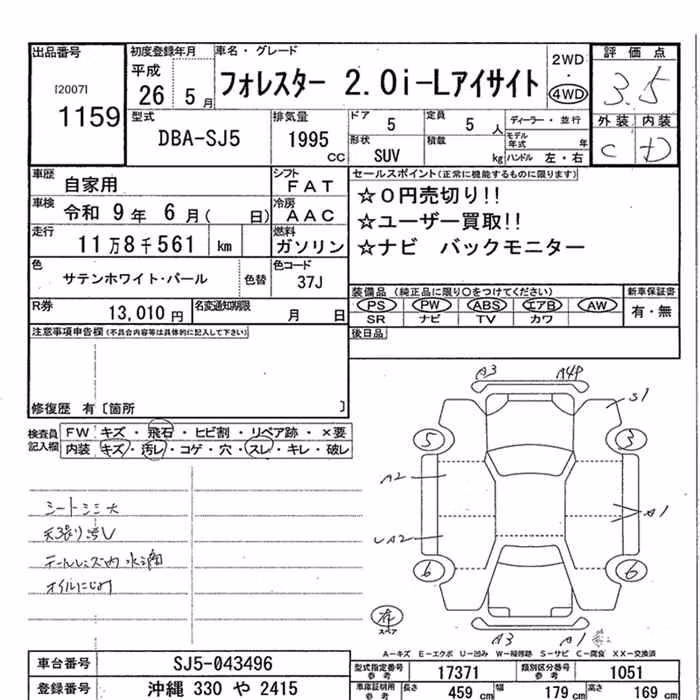 出品番号
[2007]
1159
初度登録年月
平成
26 5月
車名・グレード
フォレスター 2.0i-Lアイサイト
2WD
・
4WD
評価点
3.5
外装 内装
C D
型式
DBA-SJ5
排気量
1995
CC
ドア
5
定員
5 人
形状
SUV
積載
kg
ディーラー・並行
モデル年式 年
ハンドル 左・右
車歴
自家用
シフト
FAT
車検
令和 9年 6月( 日)
冷房
AAC
走行
11万8千561 km
燃料
ガソリン
色
サテンホワイト・パール
色替
色コード
37J
R券
13,010円
名変通知期限
月 日
セールスポイント(正常に機能するものに限ります)
☆0円売切り!!
☆ユーザー買取!!
☆ナビ バックモニター
装備品(純正品に限り○をつけてください)
PS PW ABS エアB AW
SR ナビ TV カワ
新車保証書
有・無
後日品
注意事項申告欄(不具合内容等は具体的に記入して下さい)
修復歴 有〔箇所 〕
検査員記入欄
FW キズ・飛石・ヒビ割・リペア跡・×要
内装 キズ・汚レ・コゲ・穴・スレ・キレ・破レ
シートシミ大
天張り汚レ
テールレンズ内水滴
オイルにじみ
A3 A4P
S1
5 3
A2
A1
UA2
6 6
スペア
A3 A1
A―キズ E―エクボ U―凹み W―補修跡 S―サビ C―腐食 XX―交換済
車台番号
SJ5-043496
登録番号
沖縄 330 や 2415
型式指定番号
参考
17371
類別区分番号
参考
1051
車庫証明用
参考
長さ 459 cm
幅 179 cm
高さ 169 cm